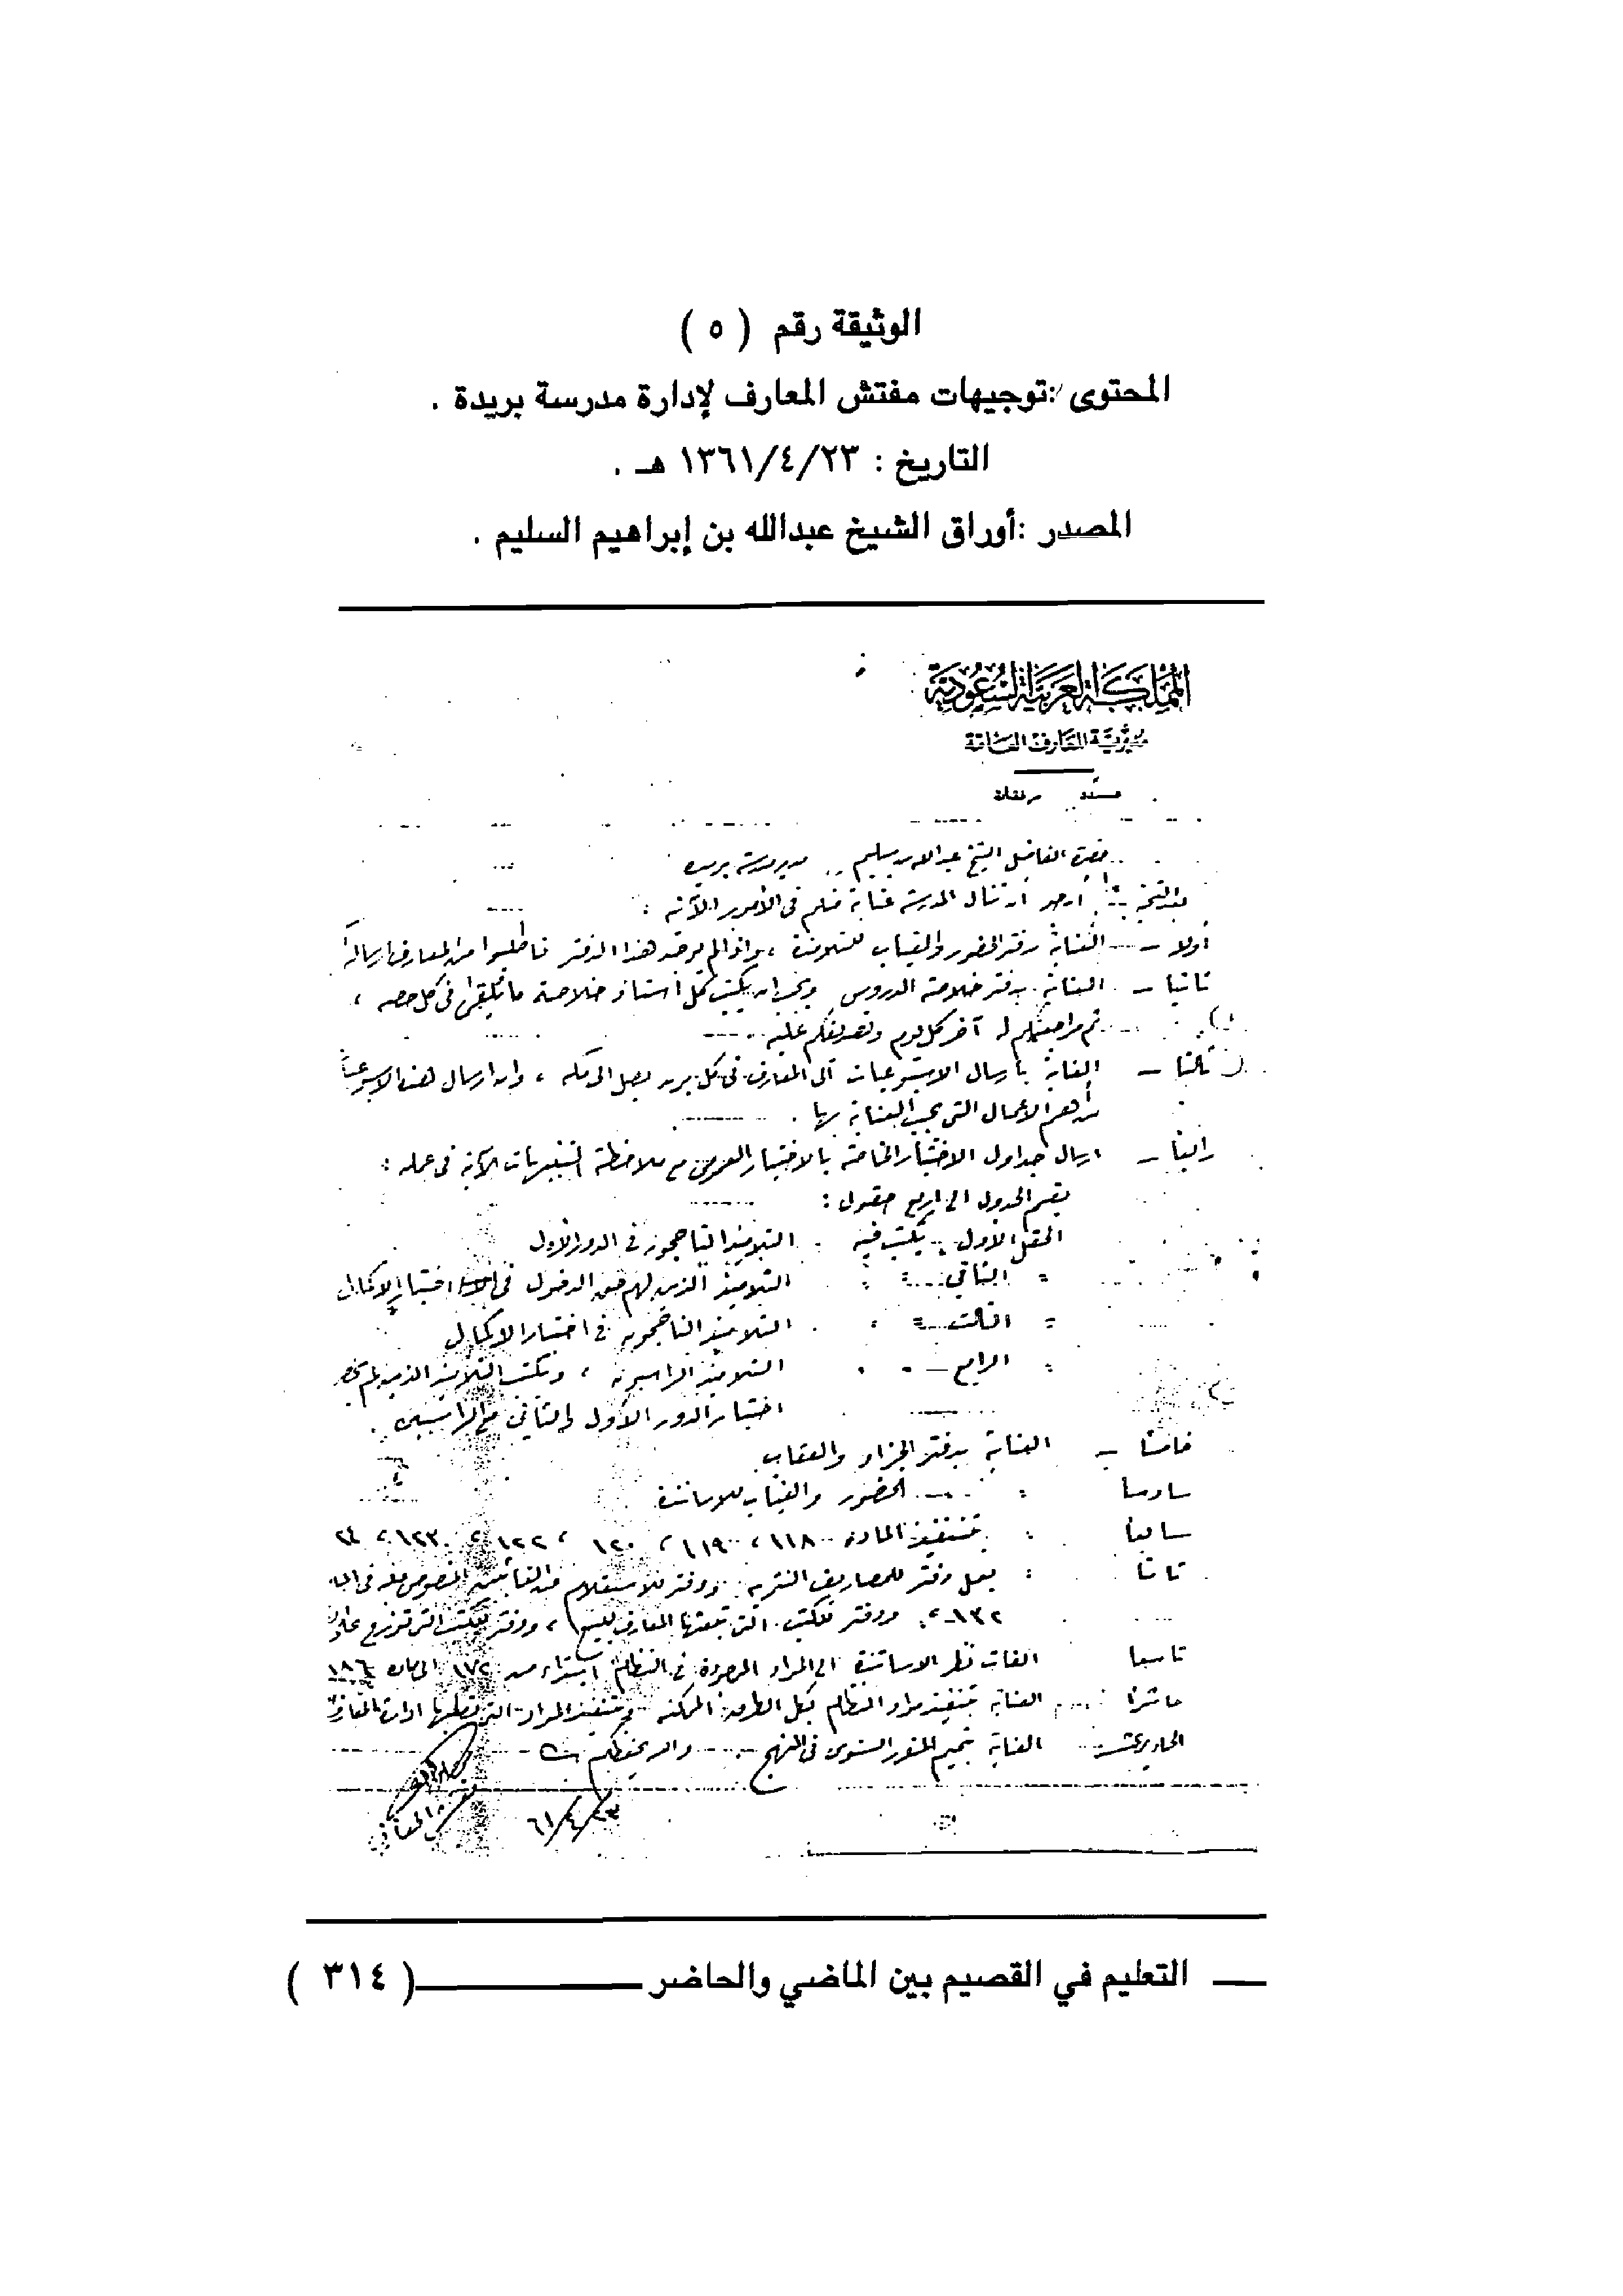 الوثيقة رقم ( ٥ )
المحتوى :توجيهات مفتش المعارف لإدارة مدرسة بريدة .
التاريخ : ١٣٦١/٤/٢٣ هـ .
المصدر :أوراق الشيخ عبدالله بن إبراهيم السليم .
المملكة العربية السعودية
مديرية المعارف العامة
حضرة الفاضل الشيخ عبدالله بن سليم .. مدير مدرسة بريدة
بعد التحية .. أرجو أن تنال المدرسة عناية منكم في الأمور الآتية :
أولا – العناية بدفتر الحضور والغياب للتلامذة ، وإذا لم يوجد هذا الدفتر فاطلبوا من المعارف ارساله
ثانيا – العناية بدفتر خلاصة الدروس ويجب ان يكتب كل استاذ خلاصة ما يلقيه في كل حصه ،
ثم مراجعتكم له آخر كل يوم وتصديقكم عليه
ثالثا – العناية بارسال الاسبوعيات الى المعارف في كل بريد يصل الى مكه ، وان ارسال هذه الاسبوعيات
من أهم الاعمال التي يجب العناية بها .
رابعا – ارسال جداول الاختبار الخاصة بالاختبار العمومي مع ملاحظة التنبيهات الآتية في عمله :
يقسم الجدول الى اربع حقول :
الحقل الأول : يكتب فيه التلاميذ الناجحون في الدور الأول
= الثاني = : التلاميذ الذين لهم حق الدخول في اختبار الاكمال
= الثالث = : التلاميذ الناجحون في اختبار الاكمال
= الرابع – التلاميذ الراسبون ، ويكتب التلاميذ الذين لم
اختبار الدور الأول والثاني مع الراسبين .
خامسا – العناية بدفتر الجزاء والعقاب
سادسا : الحضور والغياب للاساتذة
سابعا : بتنفيذ المادة ١١٨ ، ١١٩ ، ١٢٠ ، ١٢٢ ، ١٢٣ ، ٢٤
ثامنا : بعمل دفتر للمصاريف النثرية ودفتر للاستعلام عن الغائبين المنصوص عليه في
١٣٢ ، ودفتر للكتب التي تبعثها المعارف للبيع ، ودفتر للكتب التي توزع
تاسعا الفات نظر الاساتذة الى المواد الموجودة في النظام ابتداء من ١٧٢ الى مادة ١٨٦
عاشرا العناية بتنفيذ مواد النظام بكل الطرق الممكنه
الحادي عشر العناية بتتميم المقرر السنوي في المنهج والله يحفظكم
٦١/٤/٢٣
التعليم في القصيم بين الماضي والحاضر ( ٣١٤ )